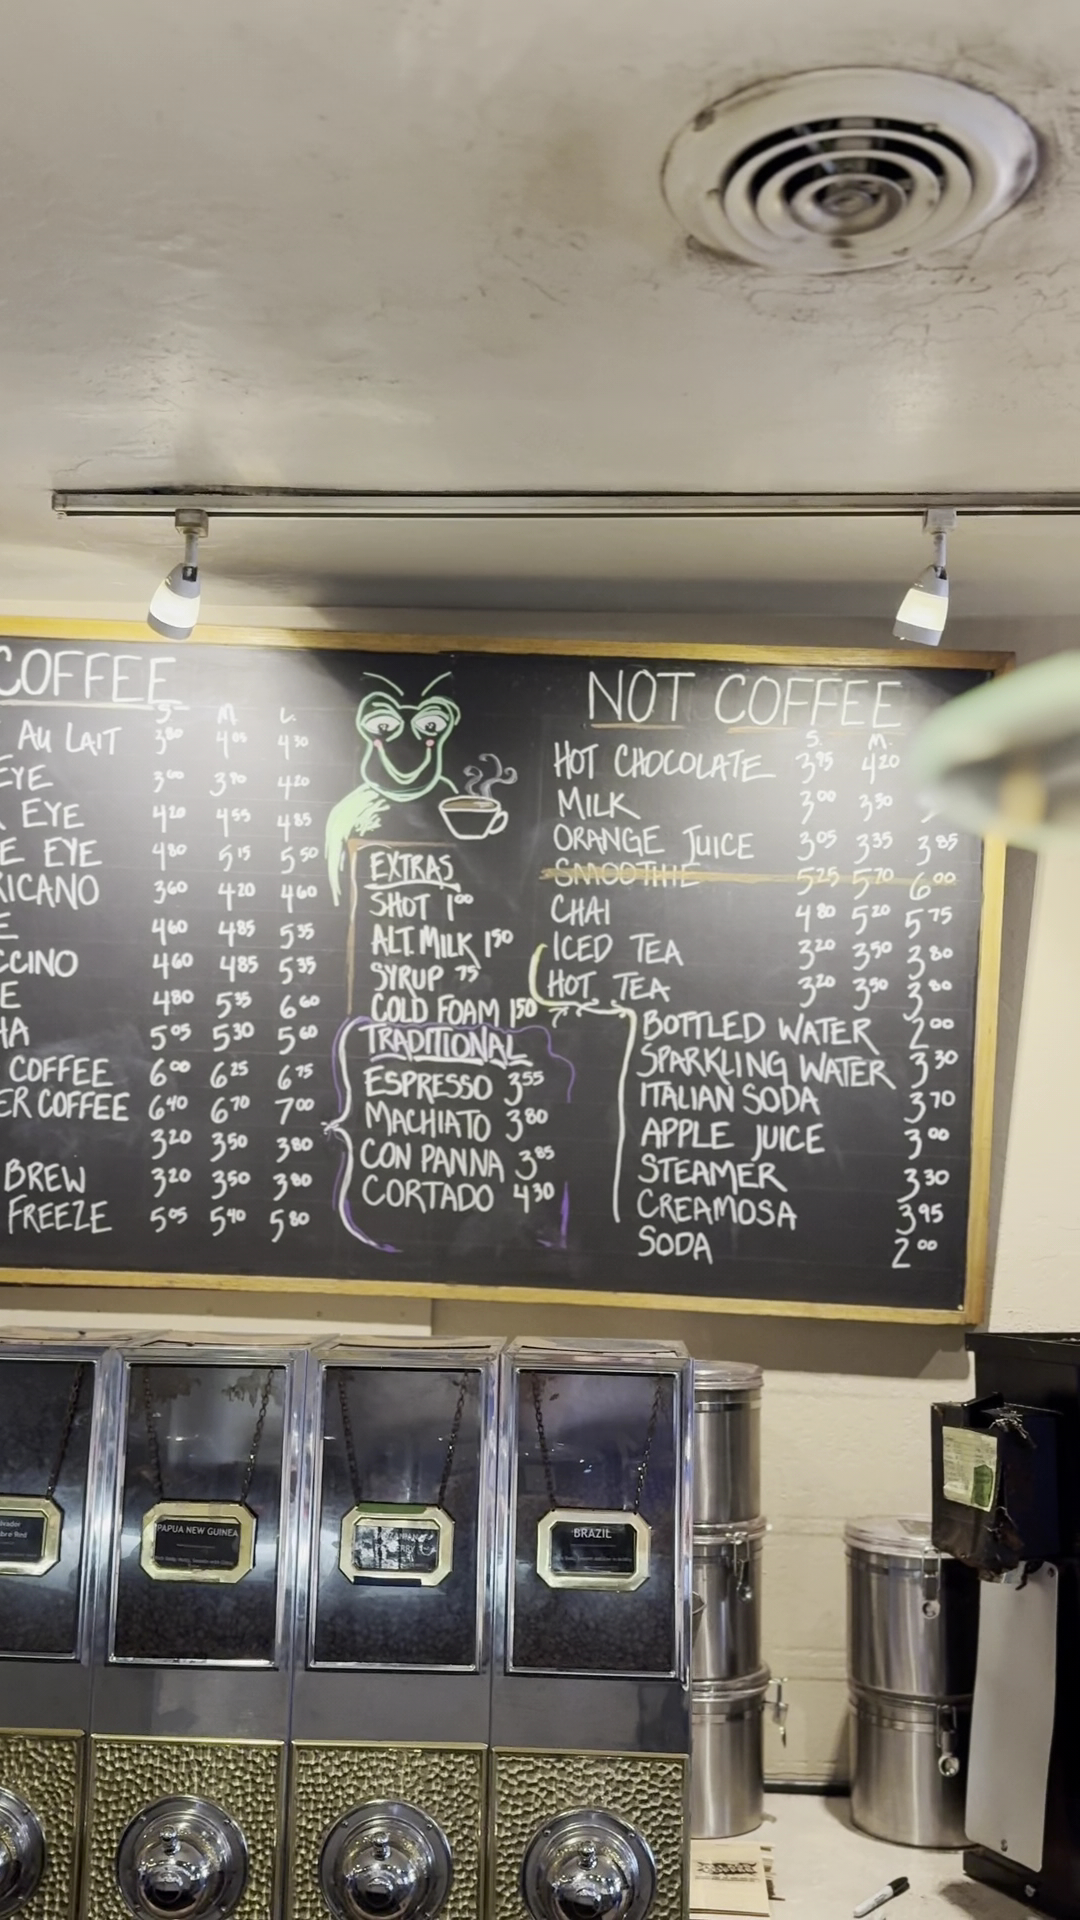 COFFEE
S. M. L.
AU LAIT 3.80 4.05 4.30
EYE 3.60 3.90 4.20
EYE 4.20 4.55 4.85
E EYE 4.80 5.15 5.50
RICANO 3.60 4.20 4.60
E 4.60 4.85 5.35
CCINO 4.60 4.85 5.35
E 4.80 5.35 6.60
HA 5.05 5.30 5.60
COFFEE 6.00 6.25 6.75
ER COFFEE 6.40 6.70 7.00
3.20 3.50 3.80
BREW 3.20 3.50 3.80
FREEZE 5.05 5.40 5.80
EXTRAS
SHOT 1.00
ALT. MILK 1.50
SYRUP .75
COLD FOAM 1.50
TRADITIONAL
ESPRESSO 3.55
MACHIATO 3.80
CON PANNA 3.85
CORTADO 4.30
NOT COFFEE
S. M.
HOT CHOCOLATE 3.95 4.20
MILK 3.00 3.30
ORANGE JUICE 3.05 3.35 3.85
SMOOTHIE 5.25 5.70 6.00
CHAI 4.80 5.20 5.75
ICED TEA 3.20 3.50 3.80
HOT TEA 3.20 3.50 3.80
BOTTLED WATER 2.00
SPARKLING WATER 3.30
ITALIAN SODA 3.70
APPLE JUICE 3.00
STEAMER 3.30
CREAMOSA 3.95
SODA 2.00
PAPUA NEW GUINEA
BRAZIL